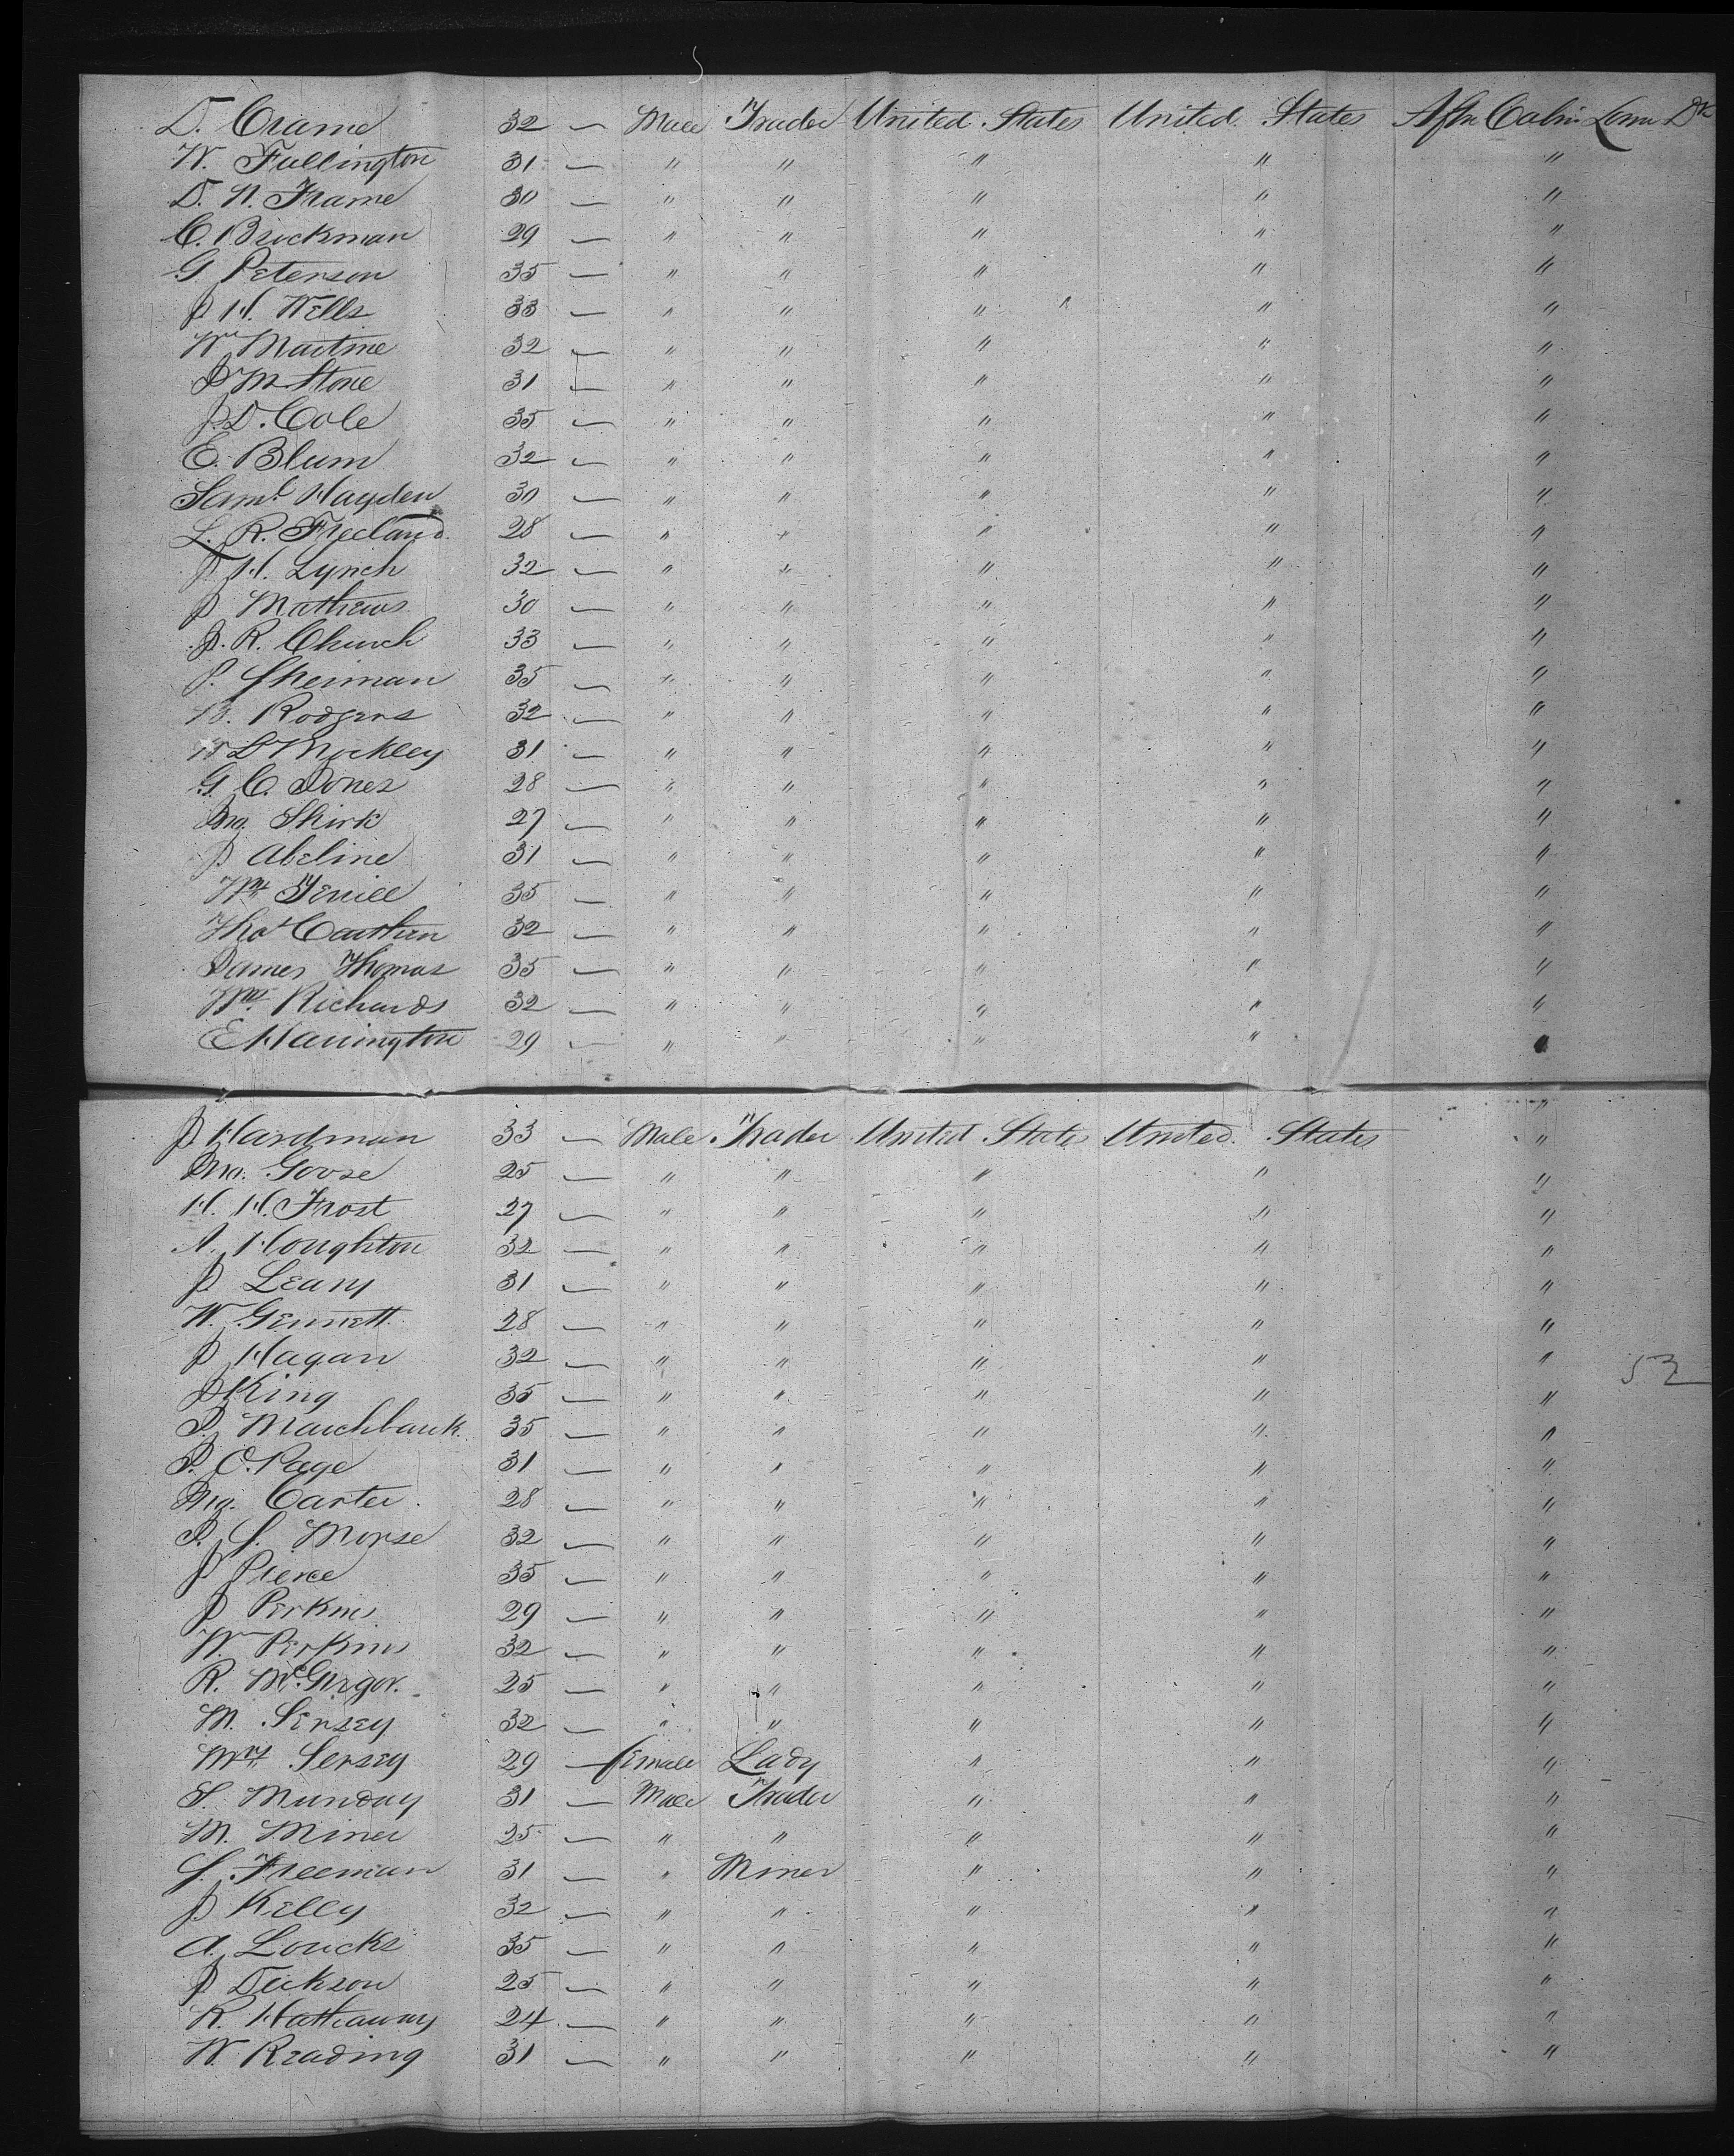 D. Crame 32 — Male Trader United States United States Aftr Cabin Lowr Dk
W. Fullington 31 — " " " " "
D. N. Frame 30 — " " " " "
C. Brickman 29 — " " " " "
G Peterson 35 — " " " " "
J H. Wells 33 — " " " " "
Wm Martine 32 — " " " " "
J M Stone 31 — " " " " "
J. D. Cole 35 — " " " " "
E. Blum 32 — " " " " "
Saml Hayden 30 — " " " " "
L. R. Freeland. 28 — " " " " "
J H. Lynch 32 — " " " " "
J Mathews 30 — " " " " "
J. R. Church 33 — " " " " "
P. Sherman 35 — " " " " "
B. Rodgers 32 — " " " " "
D Mockley 31 — " " " " "
G. C. Jones 28 — " " " " "
Jno. Shirk 27 — " " " " "
J Abeline 31 — " " " " "
Wm Terrill 35 — " " " " "
Thos Carthen 32 — " " " " "
James Thomas 35 — " " " " "
Wm Richards 32 — " " " " "
E Harrington 29 — " " " " "
"
J Hardman 33 — Male Trader United States United States "
Jno. Goose 25 — " " " " "
H. H. Frost 27 — " " " " "
A. Houghton 32 — " " " " "
J Leary 31 — " " " " "
W. Gennett 28 — " " " " "
J Hagan 32 — " " " " " 53
J King 35 — " " " " "
P. Marchbank. 35 — " " " " "
P. O. Page 31 — " " " " "
Jno. Carter. 28 — " " " " "
P. S. Morse 32 — " " " " "
J Pierce 35 — " " " " "
J Perkins 29 — " " " " "
W. Perkins 32 — " " " " "
R. McGregor. 25 — " " " " "
M. Sersey 32 — " " " " "
Mrs Sersey 29 — female Lady " " "
S. Munday 31 — Male Trader " " "
M. Miner 25 — " " " " "
S. Freeman 31 — " Miner " " "
J Kelly 32 — " " " " "
A. Loucks 35 — " " " " "
J Dickson 25 — " " " " "
R. Hathaway 24 — " " " " "
W. Reading 31 — " " " " "